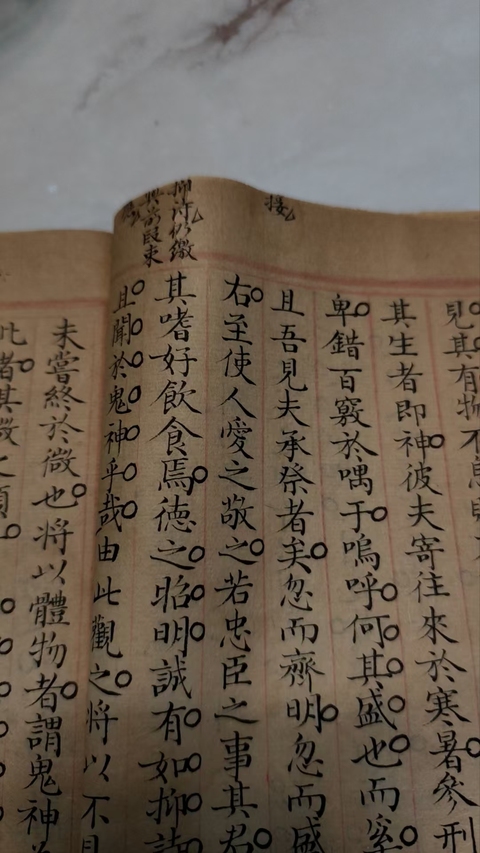 見其有物不
其生者即神彼夫寄往來於寒暑參刑
卑錯百竅於喁于嗚呼何其盛也而
且吾見夫承祭者矣忽而齊明忽而盛
右至使人愛之敬之若忠臣之事其君
其嗜好飲食焉德之昭明誠有如抑詩
且聞於鬼神乎哉由此觀之將以不見
未嘗終於微也將以體物者謂鬼神
此者其微之顯
接
抑詩仍繳